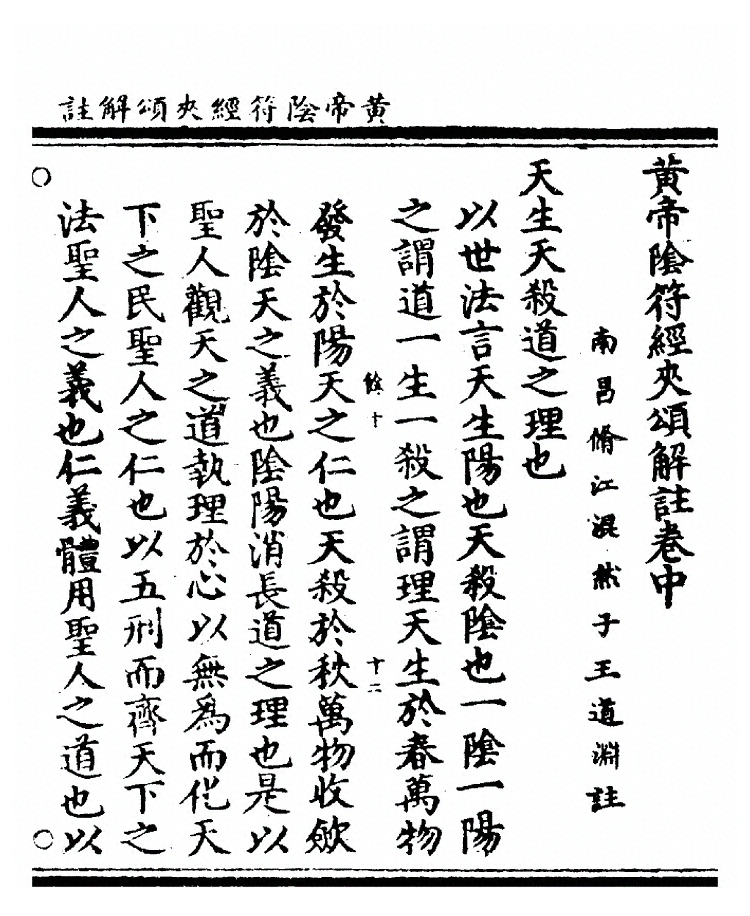 黄帝陰符經夾頌解註
黄帝陰符經夾頌解註卷中
南昌脩江混然子王道淵註
天生天殺道之理也
以世法言天生陽也天殺陰也一陰一陽
之謂道一生一殺之謂理天生於春萬物
餘十
十二
發生於陽天之仁也天殺於秋萬物收歛
於陰天之義也陰陽消長道之理也是以
聖人觀天之道執理於心以無爲而化天
下之民聖人之仁也以五刑而齊天下之
法聖人之義也仁義體用聖人之道也以